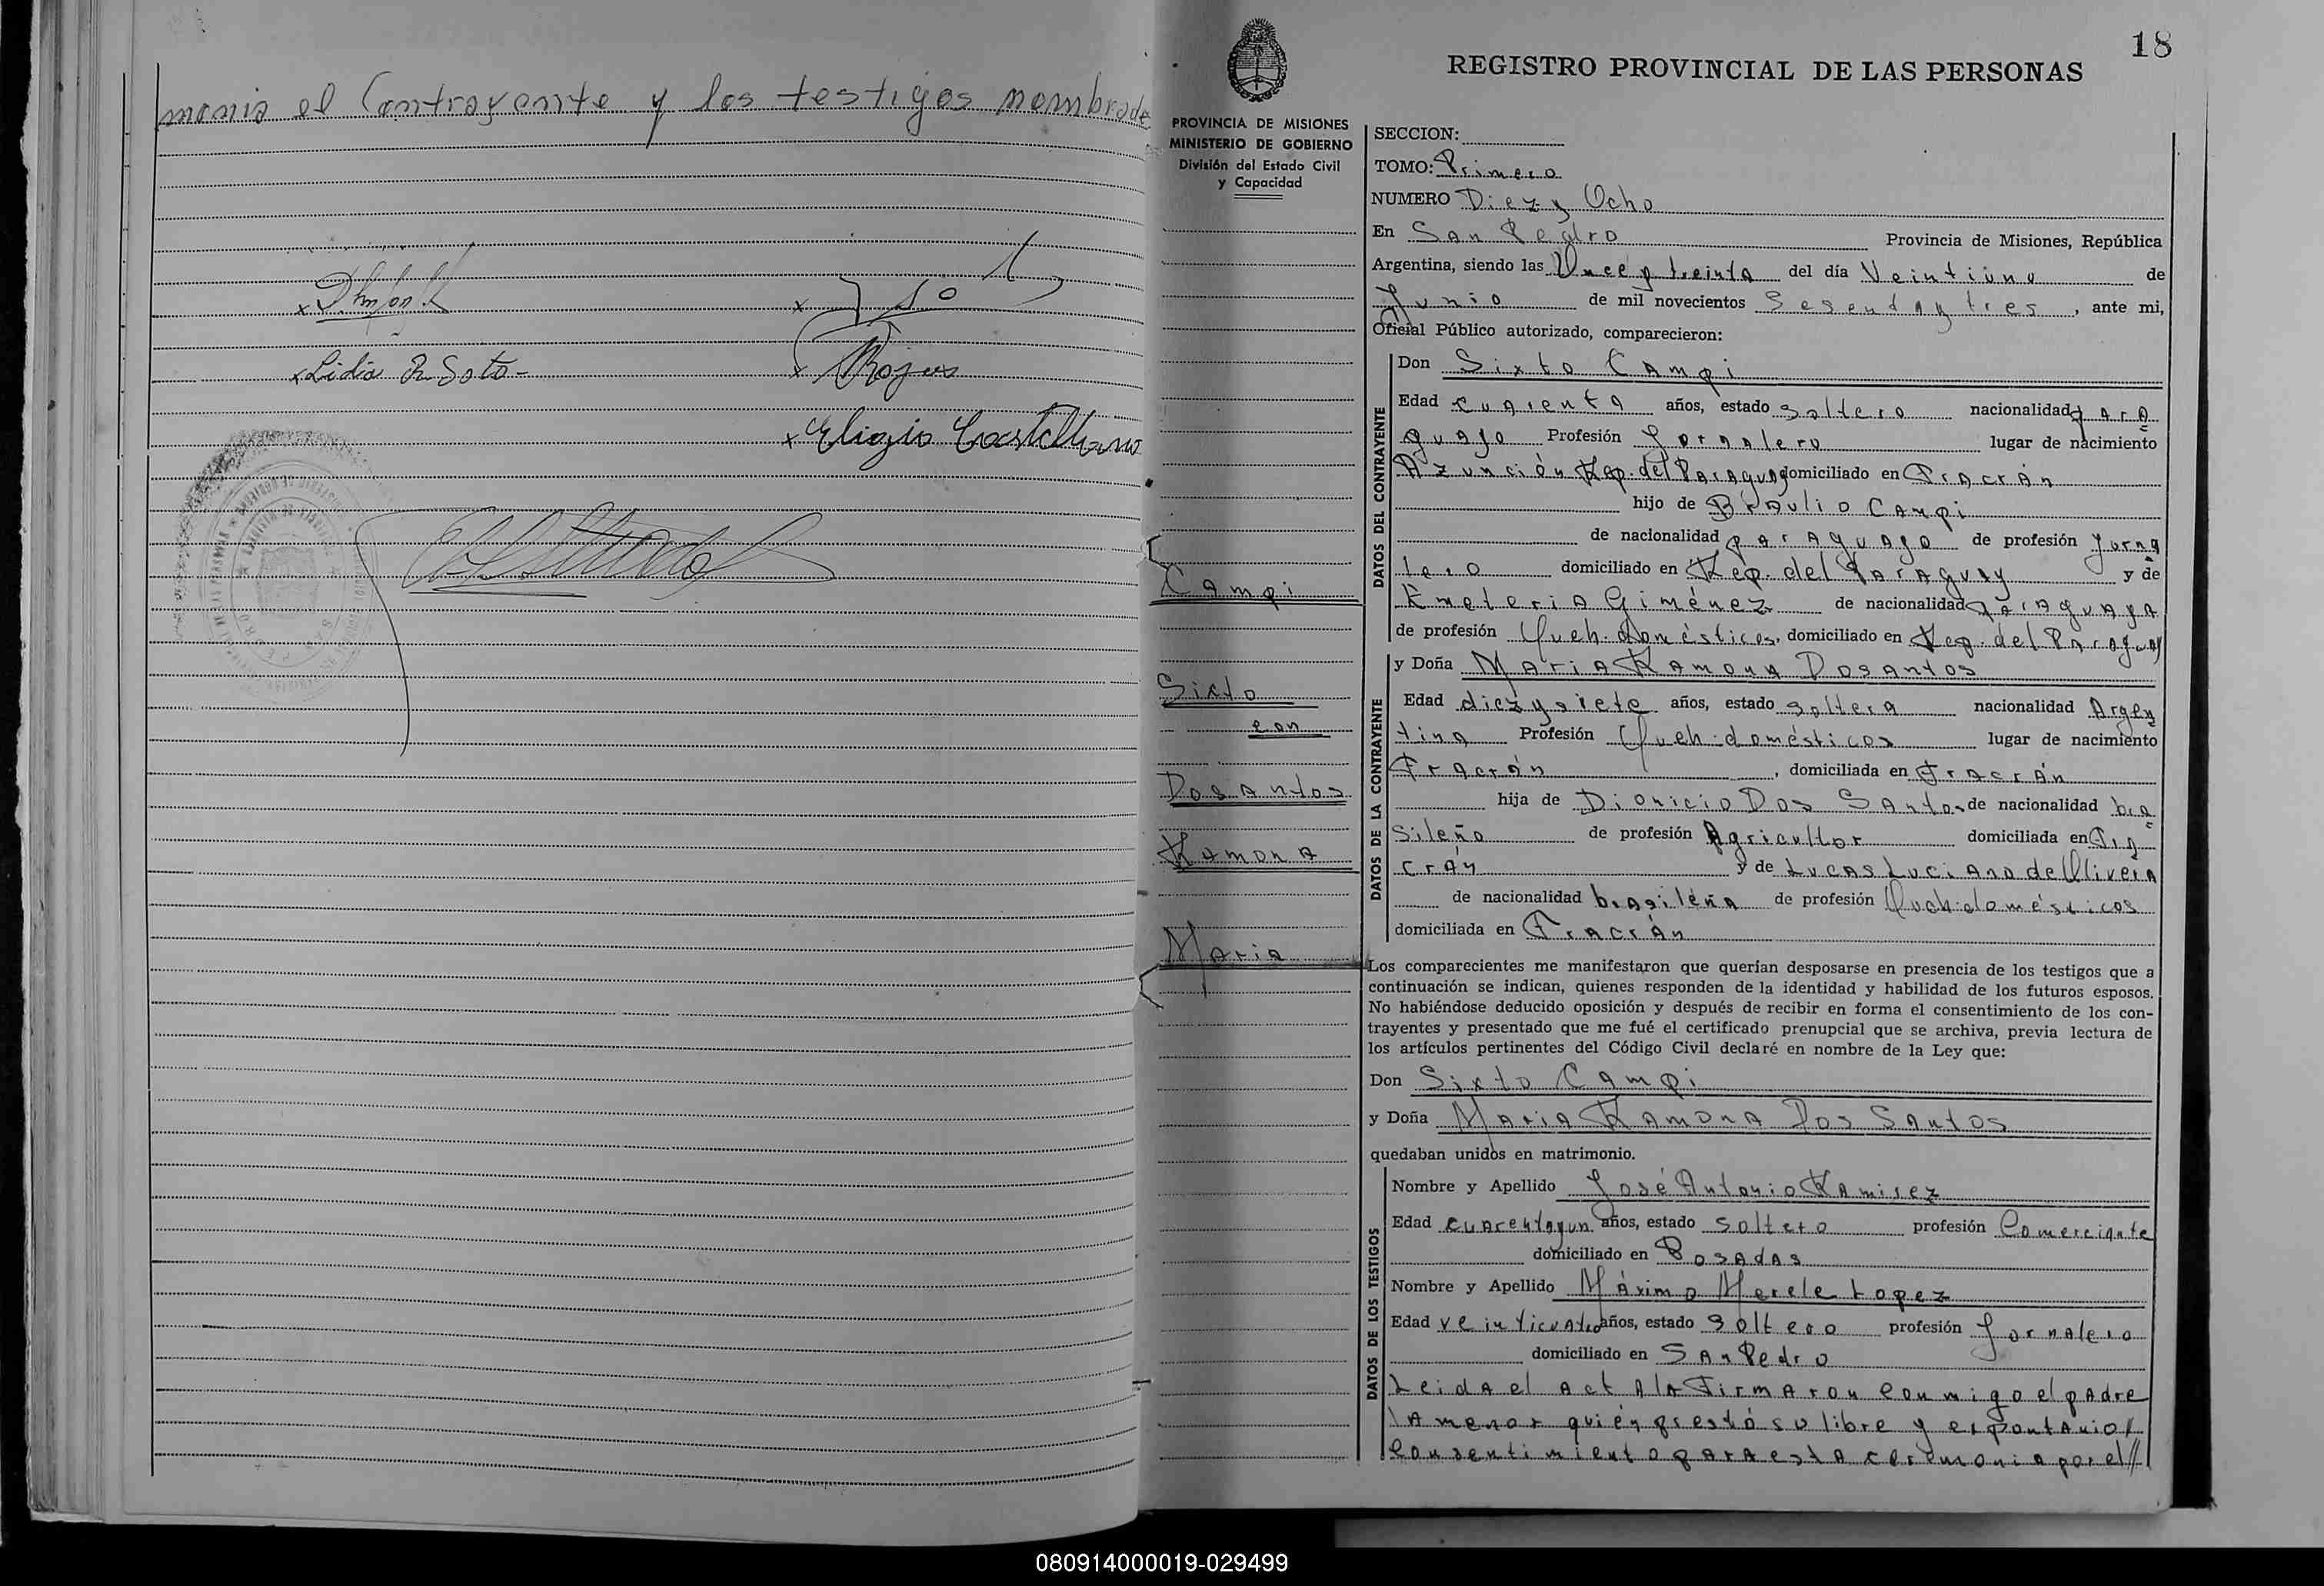 monia el Contrayente y los testigos nombrado
x Lidia R Soto-
x Rojas
x Eligio Castellano
18
REGISTRO PROVINCIAL DE LAS PERSONAS
PROVINCIA DE MISIONES
MINISTERIO DE GOBIERNO
División del Estado Civil
y Capacidad
Campi
Sixto
con
Dosantos
Ramona
Maria
SECCION:
TOMO: Primero
NUMERO Diez y Ocho
En San Pedro Provincia de Misiones, República
Argentina, siendo las Once y treinta del día Veintiuno de
Junio de mil novecientos Sesenta y tres, ante mi,
Oficial Público autorizado, comparecieron:
DATOS DEL CONTRAYENTE
Don Sixto Campi
Edad cuarenta años, estado soltero nacionalidad para
guayo Profesión Jornalero lugar de nacimiento
Azunción Rep. del Paraguay domiciliado en Fracrán
hijo de Braulio Campi
de nacionalidad paraguayo de profesión Jorna
lero domiciliado en Rep. del Paraguay y de
Emeteria Giménez de nacionalidad paraguaya
de profesión Queh. domésticos, domiciliado en Rep. del Paraguay
DATOS DE LA CONTRAYENTE
y Doña Maria Ramona Dosantos
Edad diez y siete años, estado soltera nacionalidad Argen
tina Profesión Queh. domésticos lugar de nacimiento
Fracrán, domiciliada en Fracrán
hija de Dionicio Dos Santos de nacionalidad bra
sileño de profesión Agricultor domiciliada en Fra
crán y de Lucas Luciana de Olivera
de nacionalidad brasileña de profesión Queh. domésticos
domiciliada en Fracrán
Los comparecientes me manifestaron que querían desposarse en presencia de los testigos que a
continuación se indican, quienes responden de la identidad y habilidad de los futuros esposos.
No habiéndose deducido oposición y después de recibir en forma el consentimiento de los con-
trayentes y presentado que me fué el certificado prenupcial que se archiva, previa lectura de
los artículos pertinentes del Código Civil declaré en nombre de la Ley que:
Don Sixto Campi
y Doña Maria Ramona Dos Santos
quedaban unidos en matrimonio.
DATOS DE LOS TESTIGOS
Nombre y Apellido José Antonio Ramirez
Edad cuarentayun años, estado soltero profesión Comerciante
domiciliado en Posadas
Nombre y Apellido Máximo Merele Lopez
Edad veinticuatro años, estado soltero profesión Jornalero
domiciliado en San Pedro
Leida el acta la firmaron conmigo el padre
la menor quién prestó su libre y expontanio/
consentimiento para esta ceremonia por el//
080914000019-029499